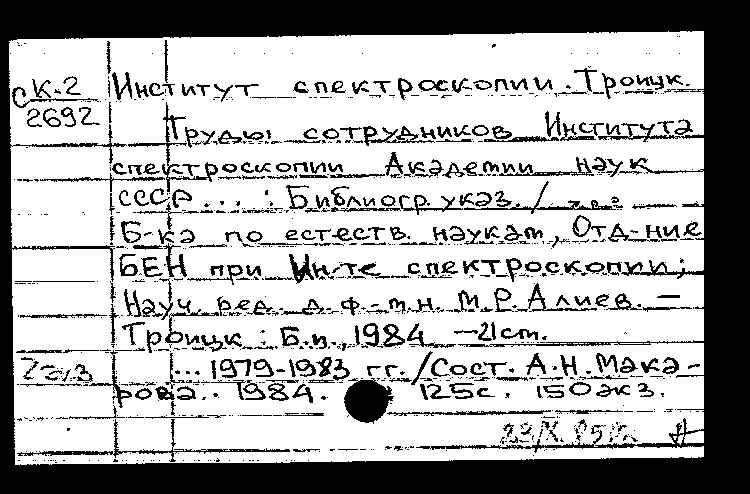 СК-2 Институт спектроскопии. Троицк.
2692
Труды сотрудников Института
спектроскопии Академии наук
СССР ... : Библиогр. указ. /
Б-ка по естеств. наукам, Отд-ние
БЕН при Ин-те спектроскопии;
Науч. ред. д.ф.-м.н. М.Р. Алиев. —
Троицк : Б.и., 1984 — 21 см.
2 экз ... 1979-1983 гг. / Сост. А.Н. Мака-
рова. . 1984. 125с. 150 экз.